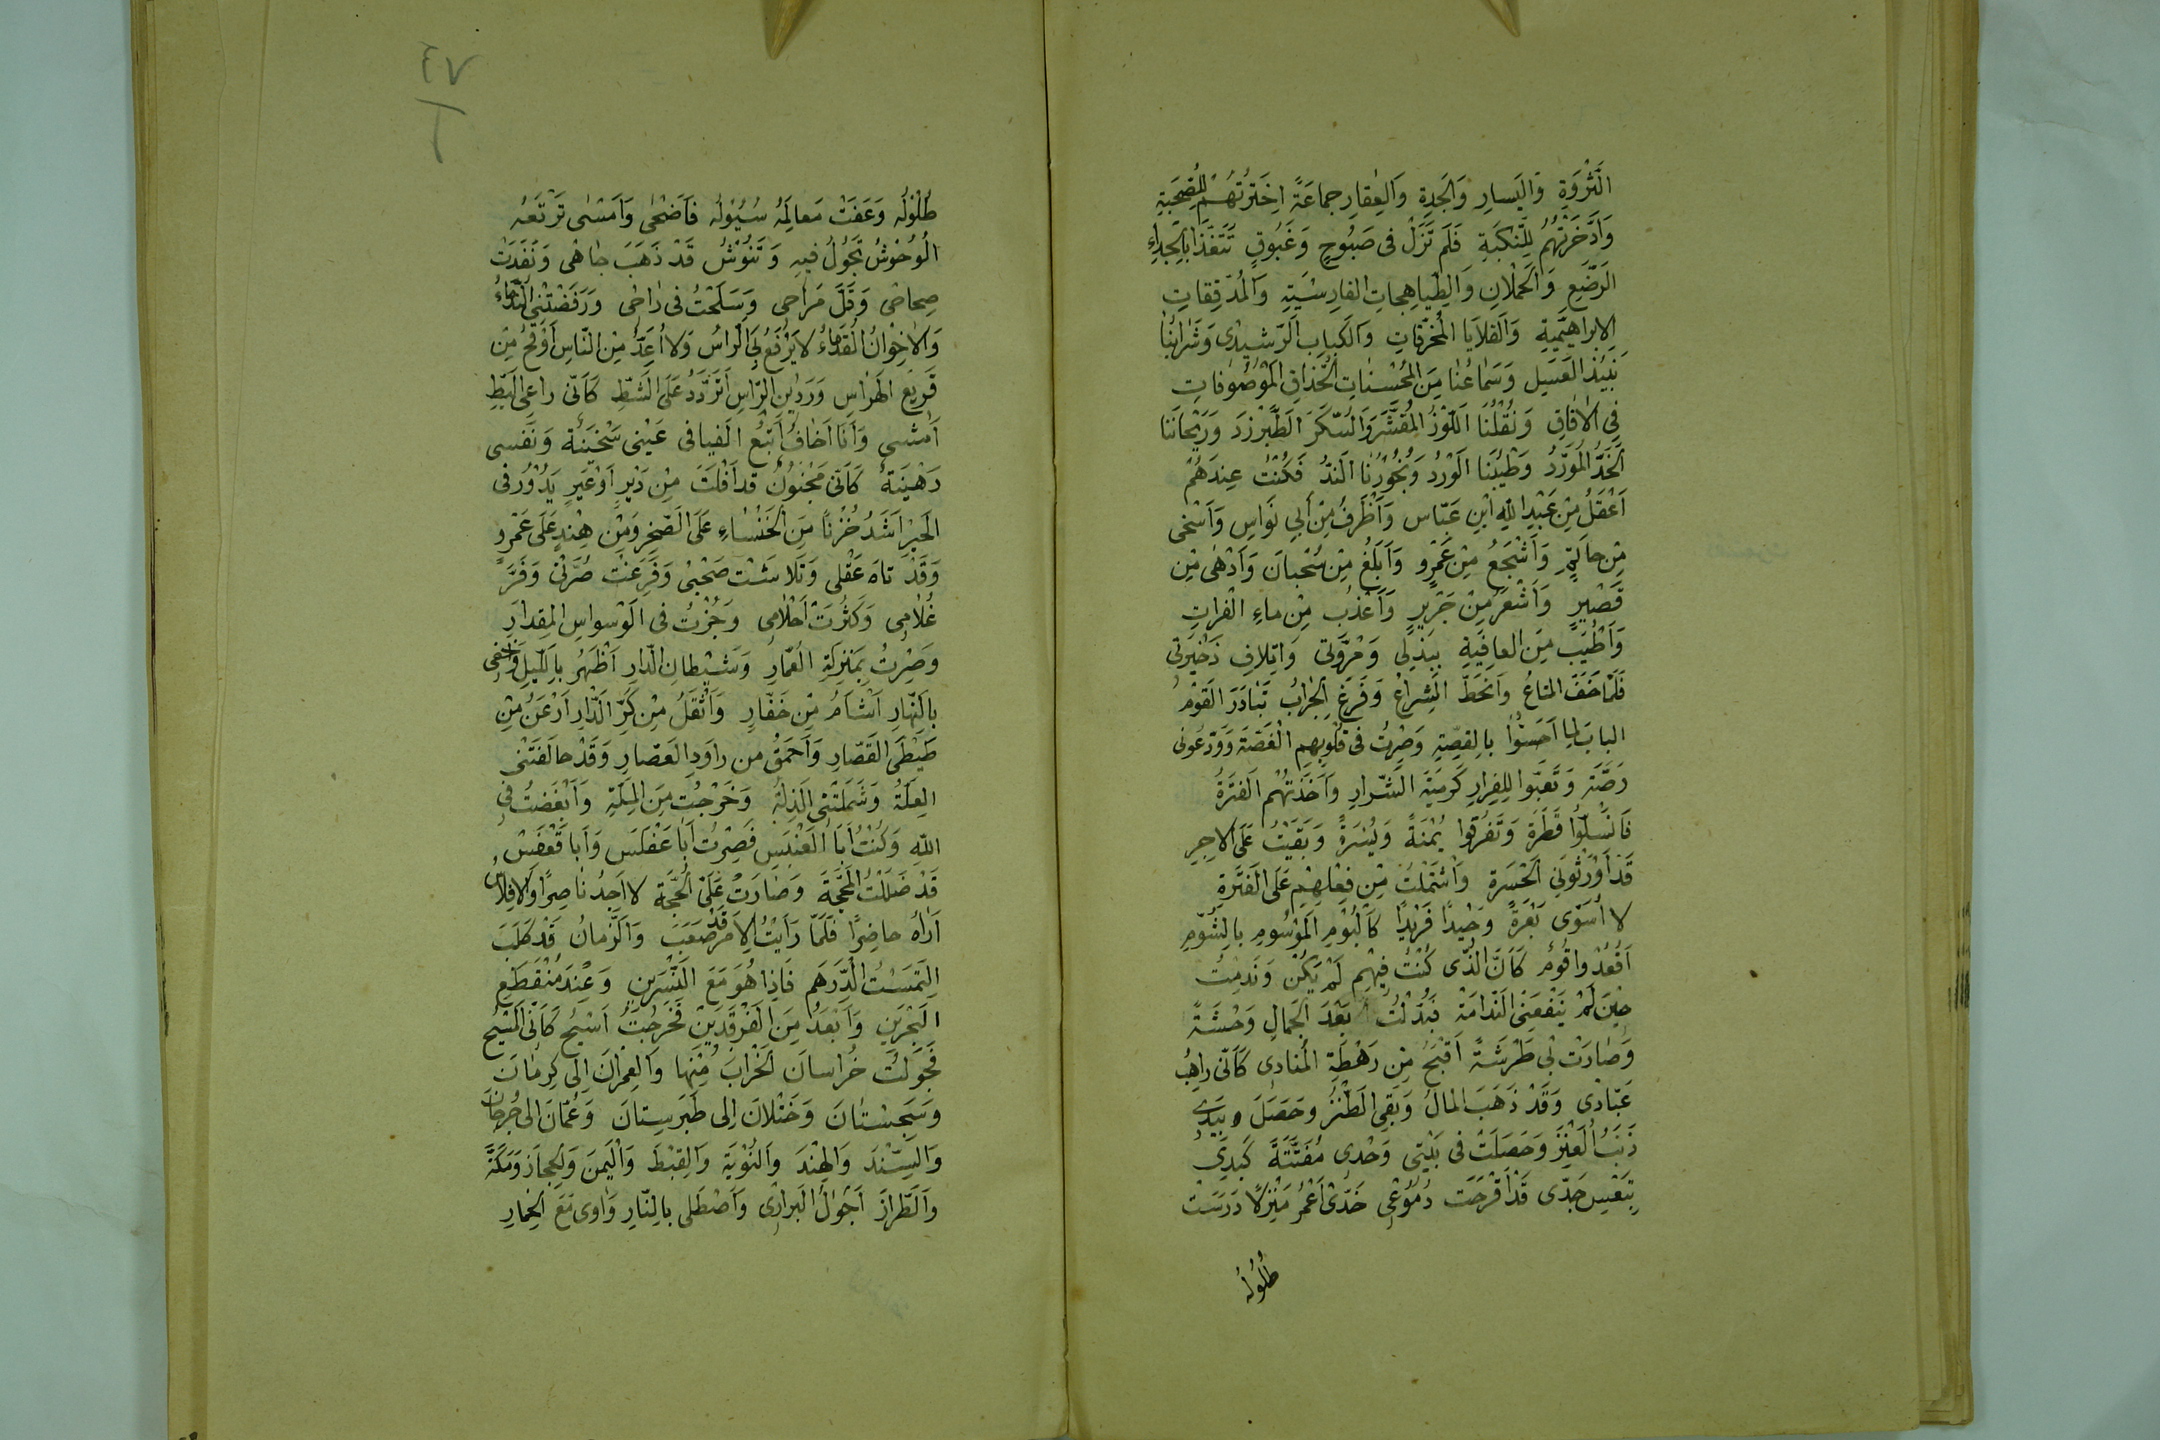 الثَّرْوَةِ وَاليَسارِ وَالجَدِةِ وَالعِقارِ جماعَةً اِختَرْتُهُمْ لِلصُّحْبَةِ
وَادَّخَرْتُهُمْ لِلنَّكبَةِ فَلَم نَزَلْ فى صَبُوحٍ وَغَبُوقٍ نَتَغَذّا بِالجِداءِ
الرُّضَّعِ وَالحُمْلانِ وَالطَّباهِجاتِ الفارِسِيَّةِ وَالمُدَقِقاتِ
الابراهيميّةِ وَالقلايا المُخَرَّقاتِ وَالكِبابِ الرَّشيدِى وَشَرابُنا
نَبيذ العَسَلِ وَسَماعُنا مِنَ المُحْسِناتِ الحُذّاقِ المَوْصُوفاتِ
فِي الآفاقِ وَنُقْلُنَا اللّوْزُ المُقَشَّر وَالسُّكَّر الطَّبَرْزَد وَرَيْحانُنا
الخَدُّ المُوَرَّدُ وَطيبُنا الوَرْدُ وَبَخُورُنا النَدُّ فَكُنْتُ عِندَهُمْ
اَعْقَلُ مِنْ عَبْدِ اللهِ ابْنِ عَبّاس وَاَظْرَفُ مِنْ اَبى نَواسٍ وَاَسْخى
مِنْ حاتمٍ وَاَشْجَعُ مِنْ عَمْرٍو وَاَبلَغُ مِنْ سَحْبانَ وَاَدْهى مِنْ
قَصيرٍ وَاَشْعَرُ مِنْ جَريرٍ وَاَعْذبُ مِنْ ماءِ الفُراتِ
وَاَطْيَب مِنَ العافِيَةِ بِبَذلى وَمُرُوّتى وَاِتلافِ ذَخيرَتى
فَلَمّا خَفَّ المتاعُ وَانحَطَّ الشِراعُ وَفَرَغَ الجِرابُ تَبادَرَ القَوْمُ
البابَ لِما اَحَسّوُا بِالقِصّةِ وَصِرتُ فى قُلوبِهِم الغُصَّة وَودّعُونى
رَصَّة وَتَعبّوا لِلفِرارِ كَرَميَة الشَّرارِ وَاَخَذَتهُم الفَترَةُ
فَانسَلّوُا قَطرَة وَتَفَرَّقوا يُمْنَةً وَيُسْرَةً وَبَقَيْتُ عَلى الاجرِ
قَد اَورَثونِى الحَسرَة واشتَملتُ مِنْ فِعلِهِم عَلى الفَترَةِ
لا اُسَوّى بَعْرَةً وَحيْدًا فَريْدًا كَالبُومِ المَوْسُومِ بِالشُّومِ
اَقعُدُ وَاقُومُ كَاَنَّ الذّى كُنْتُ فيهِم لَمْ يَكُن وَندِمْتُ
حِيْنَ لَمْ يَنْفَعْنِى النّدامَةُ فَبُدِّلْتُ بَعْدَ الجَمالِ وَحْشَةً
وَصارَتْ بى طرشَةً اَقْبَحُ مِنْ رَهْطَةِ المُنادى كَاَنّى راهِبٌ
عَبّادى وَقَدْ ذَهَبَ المالُ وَبَقِى الطّنْزُ وحَصَلَ بِيَدى
ذَنَبُ العَنْزِ وَحَصَلْتُ فى بَيْتى وَحْدى مُفَتّتَةً كَبِدى
بِتَعْسِ جَدّى قَدْ اَقْرَحَتْ دُمُوْعى خَدّى اَعْمُرُ مَنْزِلاً دَرَسَتْ
طُلُولُه
٤٧
طُلُولُه وَعَفَتْ مَعالِمُهُ سُيُولُه فاَضْحٰى وَاَمْسٰى تَرْتَعُه
الوُحُوْشُ تَجُولُ فيهِ وَتَنُوْشُ قَدْ ذَهَبَ جاهى وَنَفَدَتْ
صِحاحى وَقَلَّ مَراحى وَسَلَحْتُ فى راحى وَرَفَضَتْنِى النّدَماءُ
وَالاِخوانُ القُدَماءُ لا يَرْفَعُ بِى الرّاسُ وَلا اُعَدُّ مِن النّاسِ اَوْتحُ مِنْ
قَريعِ الهَراسِ وَرَزين الرّاسِ اَتَرَدَّدُ عَلَى الشّطِّ كَاَنّى راعى البَطِّ
اَمْشى وَاَنَا اَخافُ اَتبَع الفيافى عَيْنى سَخْينَة وَنَفسى
رَهْيْنَة كَاَنّى مَجْنُونٌ قَد اَفْلَتَ مِنْ دَيْرٍ اَوْ عَيْرٍ يَدُوْرُ فى
الحَيْر اَشَدّ حُزْناً مِنَ الخَنْساءِ عَلَى الصَّخرِ وَمِنْ هِنْدٍ عَلى عَمْرٍو
وَقَدْ تاهَ عَقْلى وَتَلاشَتْ صَحْبى وَفَرَغَتْ صُرَّتى وَفَرَّ
غُلامى وَكَثُرَتْ اَحْلامى وَجُزْتُ فى الوَسْواسِ المِقدارَ
وصِرْتُ بِمَنزِلَةِ العُمّارِ وَشيْطانِ الدّارِ اَظْهَرُ بِاللّيلِ وَاَخْفى
بِالنَّهارِ اَشْأمُ مِنْ حَفّارٍ وَاَثْقَلُ مِنْ كِرَى الدّارِ اَرْعَنُ مِنْ
طَيْطى القَصّارِ وَاَحمَقُ من داودِ العَصّارِ وَقَدْ حالَفَتْنى
العِلّةُ وَشَمَلَتْنى الذِلّة وَخَرَجْتُ مِنَ المِلّةِ وَاَبْغَضتُ فى
اللهِ وَكُنْتُ اَبَا العَنْبَسِ فَصِرْتُ اَبا عَفْلَسٍ وَاَبا قَعْفَسٍ
قَدْ ضَلَلْتُ المَحجَّةَ وَصارَتْ عَلَىّ الحُجَّة لا اَجدُ ناصِرًا وَالافلاسُ
اَراهُ حاضِرًا فَلَمّا رَاَيْتُ الاَمْرَ قَدْ صَعُبَ وَالزَّمانُ قَدْ كَلِبَ
التَمَسْتُ الدِّرهَم فَاِذا هُوَ مَعَ النَّسْرَينِ وَعِنْدَ مُنْقَطعِ
البَحْرَينِ وَاَبْعَدُ مِنَ الفَرْقَدَيْنِ فَخَرَجْتُ اَسْيحُ كَاَنّى المَسْيحُ
فَجَوَلْتُ خُراسانَ الخَراب مِنْها وَالعِمرانَ اِلى كِرمانَ
وسَجِسْتانَ وَخَتْلانَ اِلى طَبَرستانَ وَعُمانَ الى جُرجانَ
وَالسِّنْدَ وَالهِنْدَ وَالنُّوْبَة وَالقِبْطَ وَاليَمَنَ وَالحِجازَ وَمَكّة
وَالطّرازَ اَجُولُ البَرارى وَاَصْطَلى بِالنّارِ وَاوى مَعَ الحِمارِ